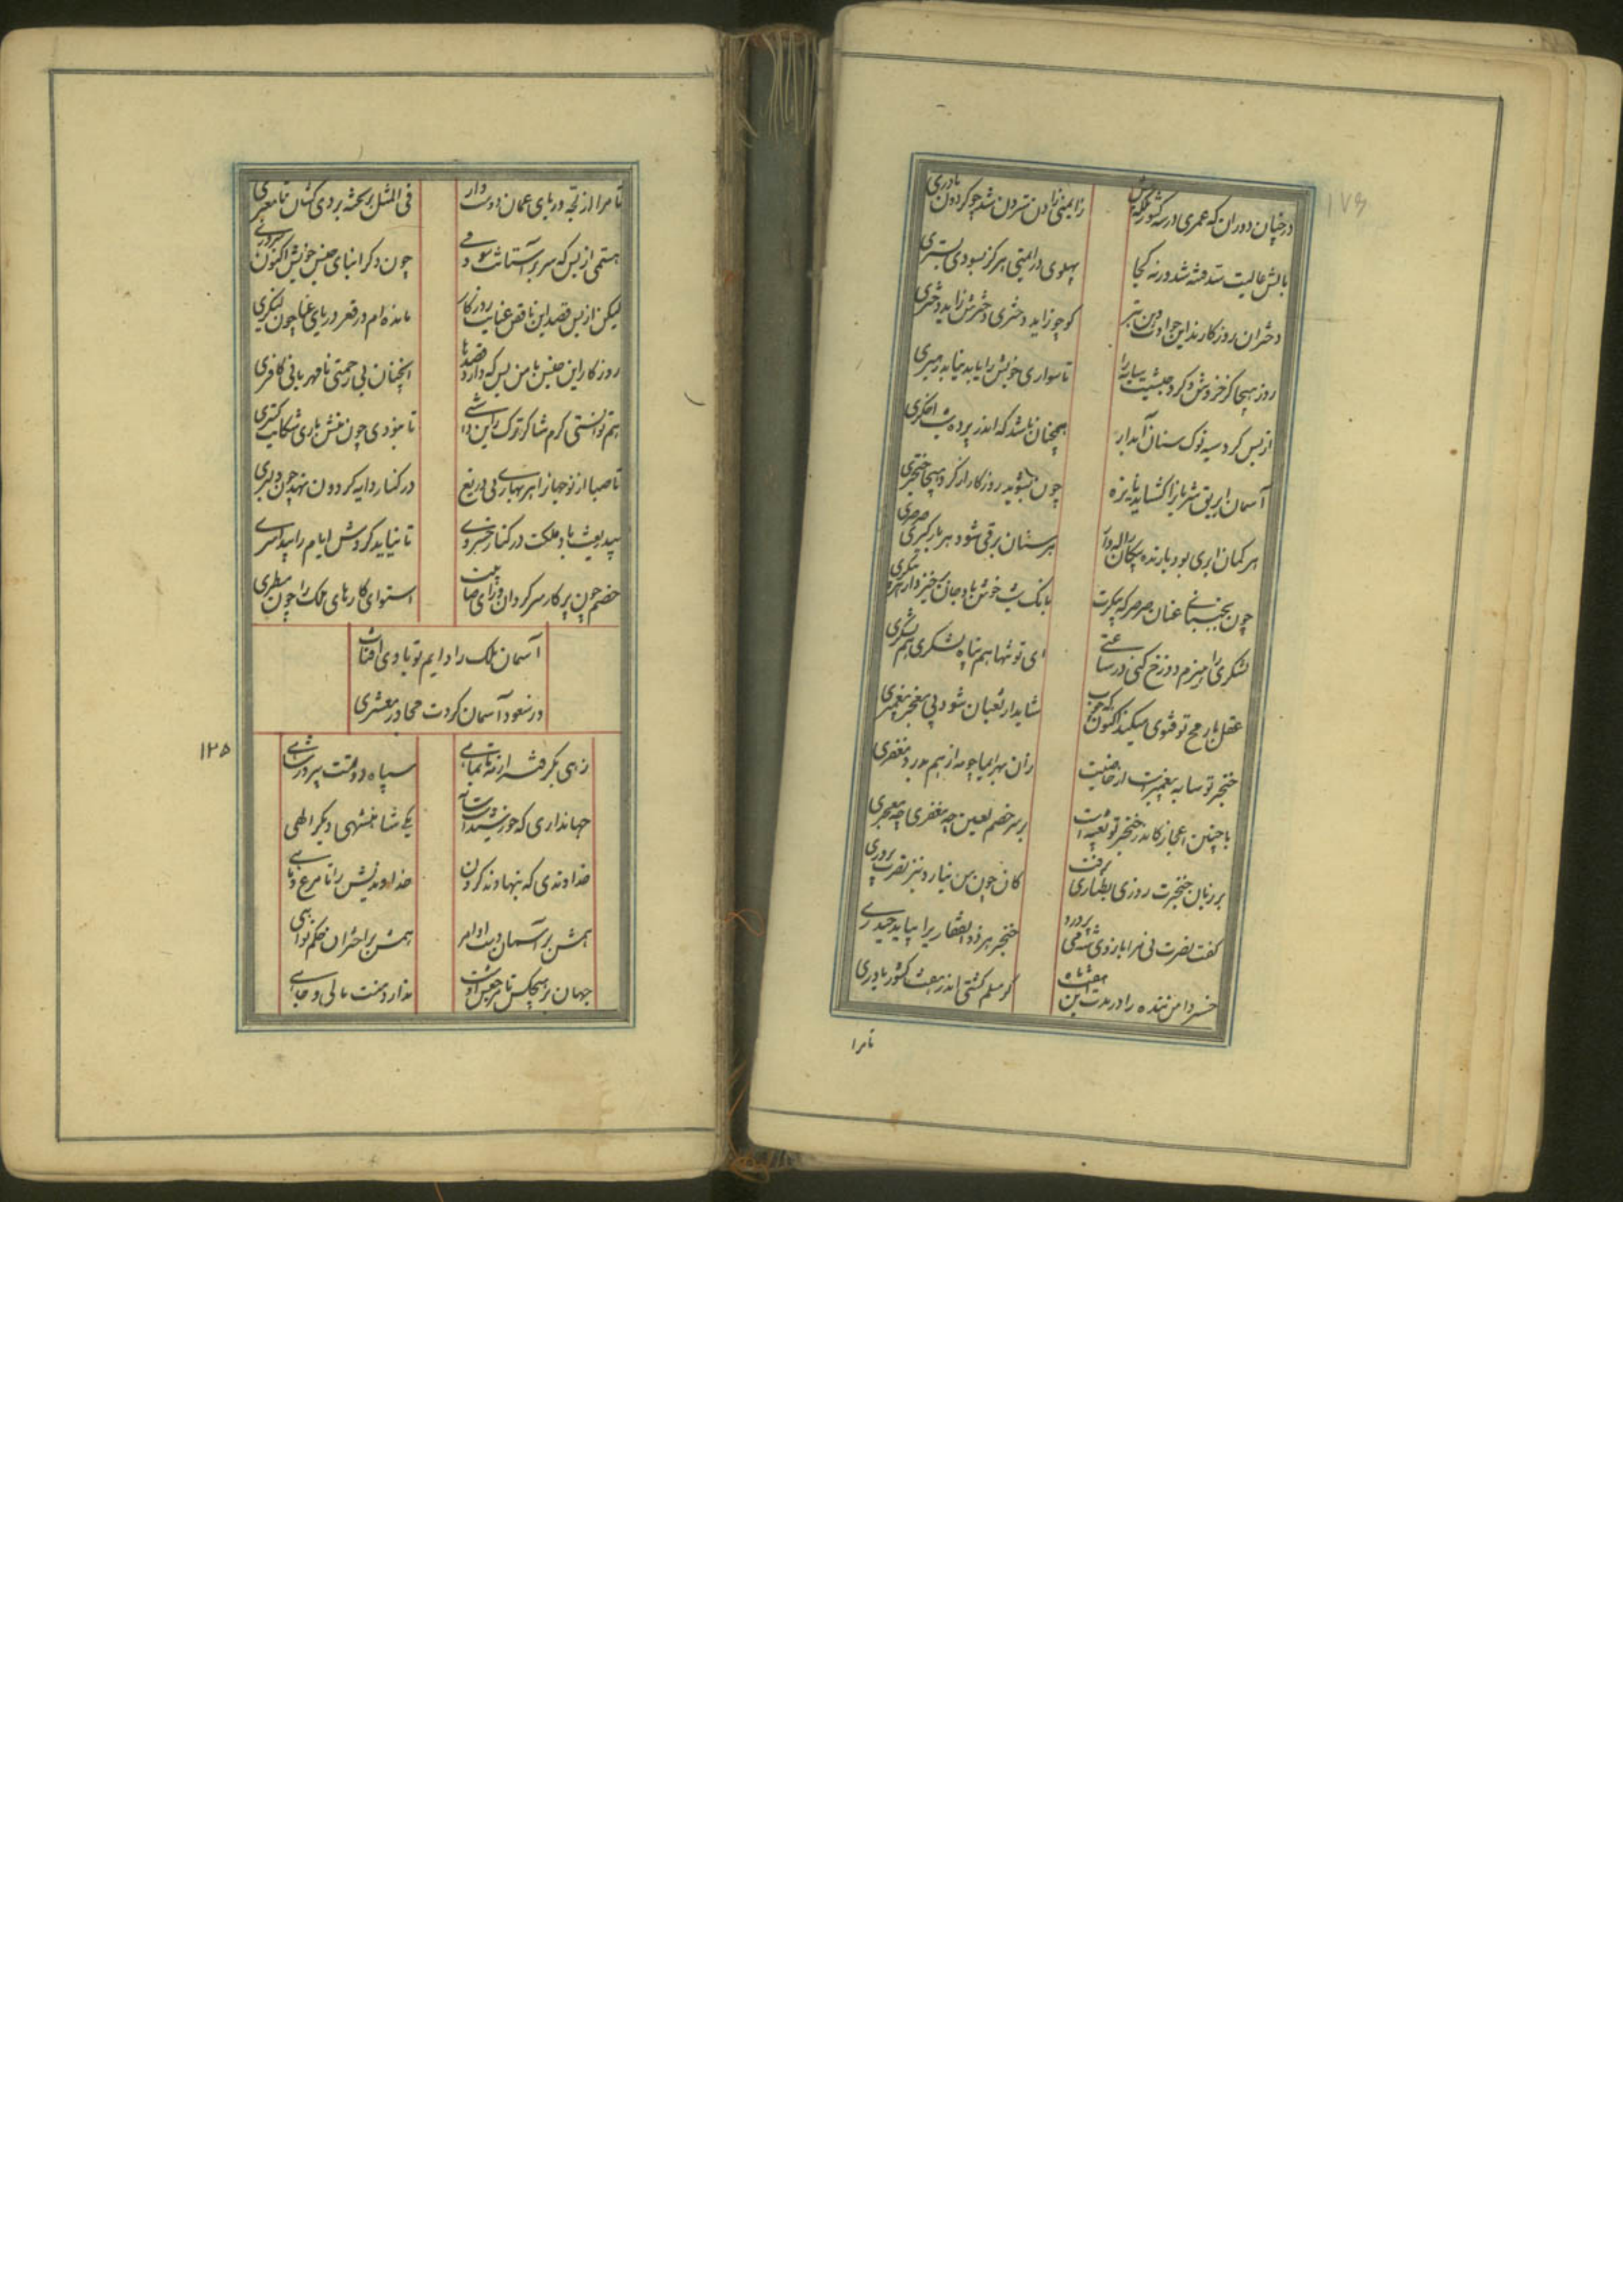 ۱۷۶
در چنان دوران که عمری در سه کشور
زایمنی زادن سترون شد چو کردون مادری
بالش عالیت سد فتنه شد ورنه کجا
پهلوی در ایمنی هرکز نسودی بستری
دختران روزکارند این حوادث وین بتر
کو چو زاید دختری دخترش زاید دختری
روز هیجا کز خروش و کرد جیشت
تا سواری خویش را یابد نیابد رهبری
از بس کرد سیه نوک سنان آبدار
همچنان باشد که اندر پرده شب اخکری
آسمان ابریق شریان را کشاید نایزه
چون بشوید روزکار از کرد هیجا خنجری
هر کمان ابری بود بارنده پیکان ژاله وار
هر سنان برقی شود هر بارکیری صرصری
چون بجنبانی عنان صرصر که پیکرت
بانک شب خوش باد جان خیزد از هر
لشکری را هیزم دوزخ کنی در ساعتی
ای تو تنها هم پناه لشکری هم لشکری
عقل با رمح تو فتوی میکند اکنون که چوب
شاید ار ثعبان شود بی معجز پیغمبری
خنجر تو سایه پیغمبرست از خاصیت
زان بهر ایما چو مه از هم بدرد مغفری
با چنین اعجاز کاندر خنجر تو تعبیه است
بر سر خصم لعین چه مغفری چه معجری
بر زبان خنجرت روزی بطنازی برفت
کان چون من نیارد نیز نصرت پروری
کفت نصرت نی مرا بازوی شه می پرورد
خنجر هر ذوالفقاری را بباید حیدری
خسروا من بنده را در مدت این هفت ماه
کر مسلم کشتی اندر هفت کشور یاوری
تا مرا
تا مرا از لجه دریای عمان دوست وار
فی المثل بر تخته بردی کشان تا معبری
هستمی از بس که سر بر آستانت سودمی
چون دکر ابنای جنس خویش اکنون سروری
لیکن از بس قصد این ناقص عنایت روزکار
مانده ام در قعر دریای عنا چون لنکری
روزکار این جنس با من بس که دارد قصدها
اینچنان بی رحمتی نامهربانی کافری
هم توانستی کرم شاکر ترک زین داشتی
تا نبودی چون منش باری شکایت کستری
تا صبا از نوجهانرا هر بهاری بی دریغ
در کنار دایه کردون نهد چون دلبری
بیدریغت باد ملکت در کنار خسروی
تا نیاید کردش ایام را پیدا سری
خصم چون پرکار سرکردان و رای صایبت
استوای کارهای ملک را چون مسطری
آسمان ملک را دایم تو بادی افتاب
در سعود آسمان کردت مجاور معشری
۱۲۵
زهی بکرفته از مه تا بماهی
سپاه دولت پیروز شاهی
جهانداری که خورشیدست و سایه
یکی شاهنشهی دیکر الهی
خداوندی که بنهادند کردن
خداوندیش را تا مرغ و ماهی
همش بر آسمان دست اوامر
همش بر اختران حکم نواهی
جهان بر هیچکس تا مرجعش اوست
ندارد منت مالی و جاهی